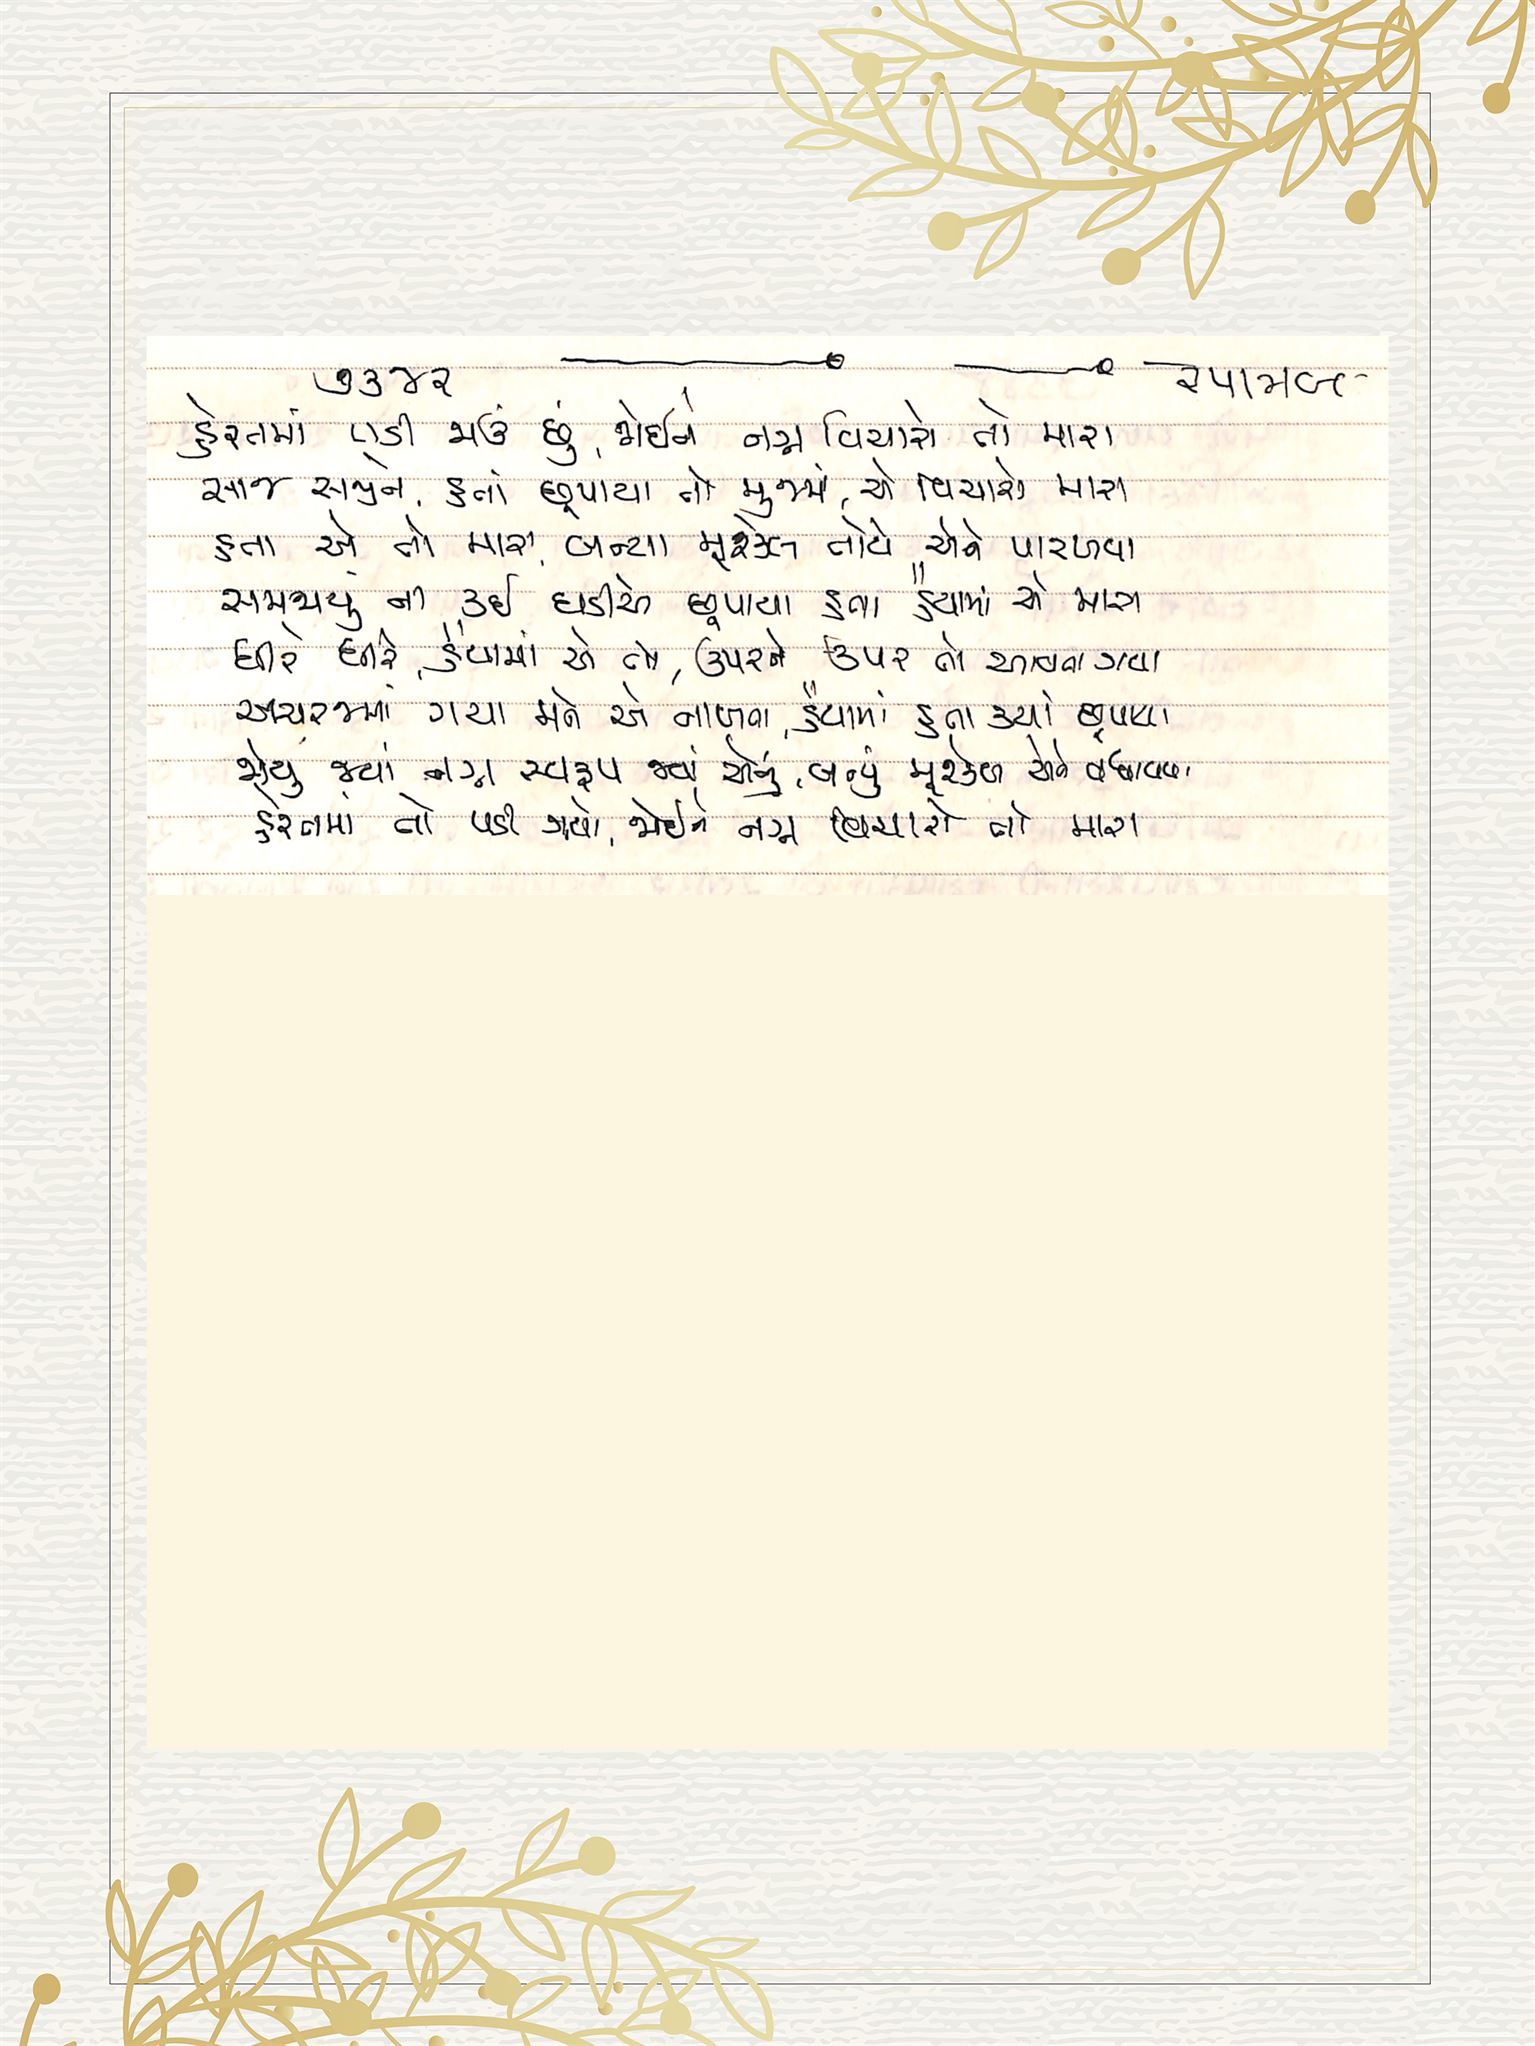 ૭૩૪૨
હેરતમાં પડી જાઉં છું, જોઈને નગ્ન વિચારો તો મારા
સાજ સજીને, હતાં છૂપાયા તો મુજમાં, એ વિચારો મારા
હતા એ તો મારા, બન્યા મૂશ્કેલ તોયે એને પારખવા
સમજાયું ની કઈ ઘડીએ છૂપાયા હતા હૈયામાં એ મારા
ધીરે ધીરે, હૈયામાં એ તો, ઉપરને ઉપર તો આવતા ગયા
અચરજમાં ગયા મને એ નાખતા, હૈયામાં હતા ક્યાં છૂપાયા
જોયું જ્યાં નગ્ન સ્વરૂપ જ્યાં એનું, બન્યું મૂશ્કેલ એને
હેરતમાં તો પડી ગયો, જોઈને નગ્ન વિચારો તો મારા